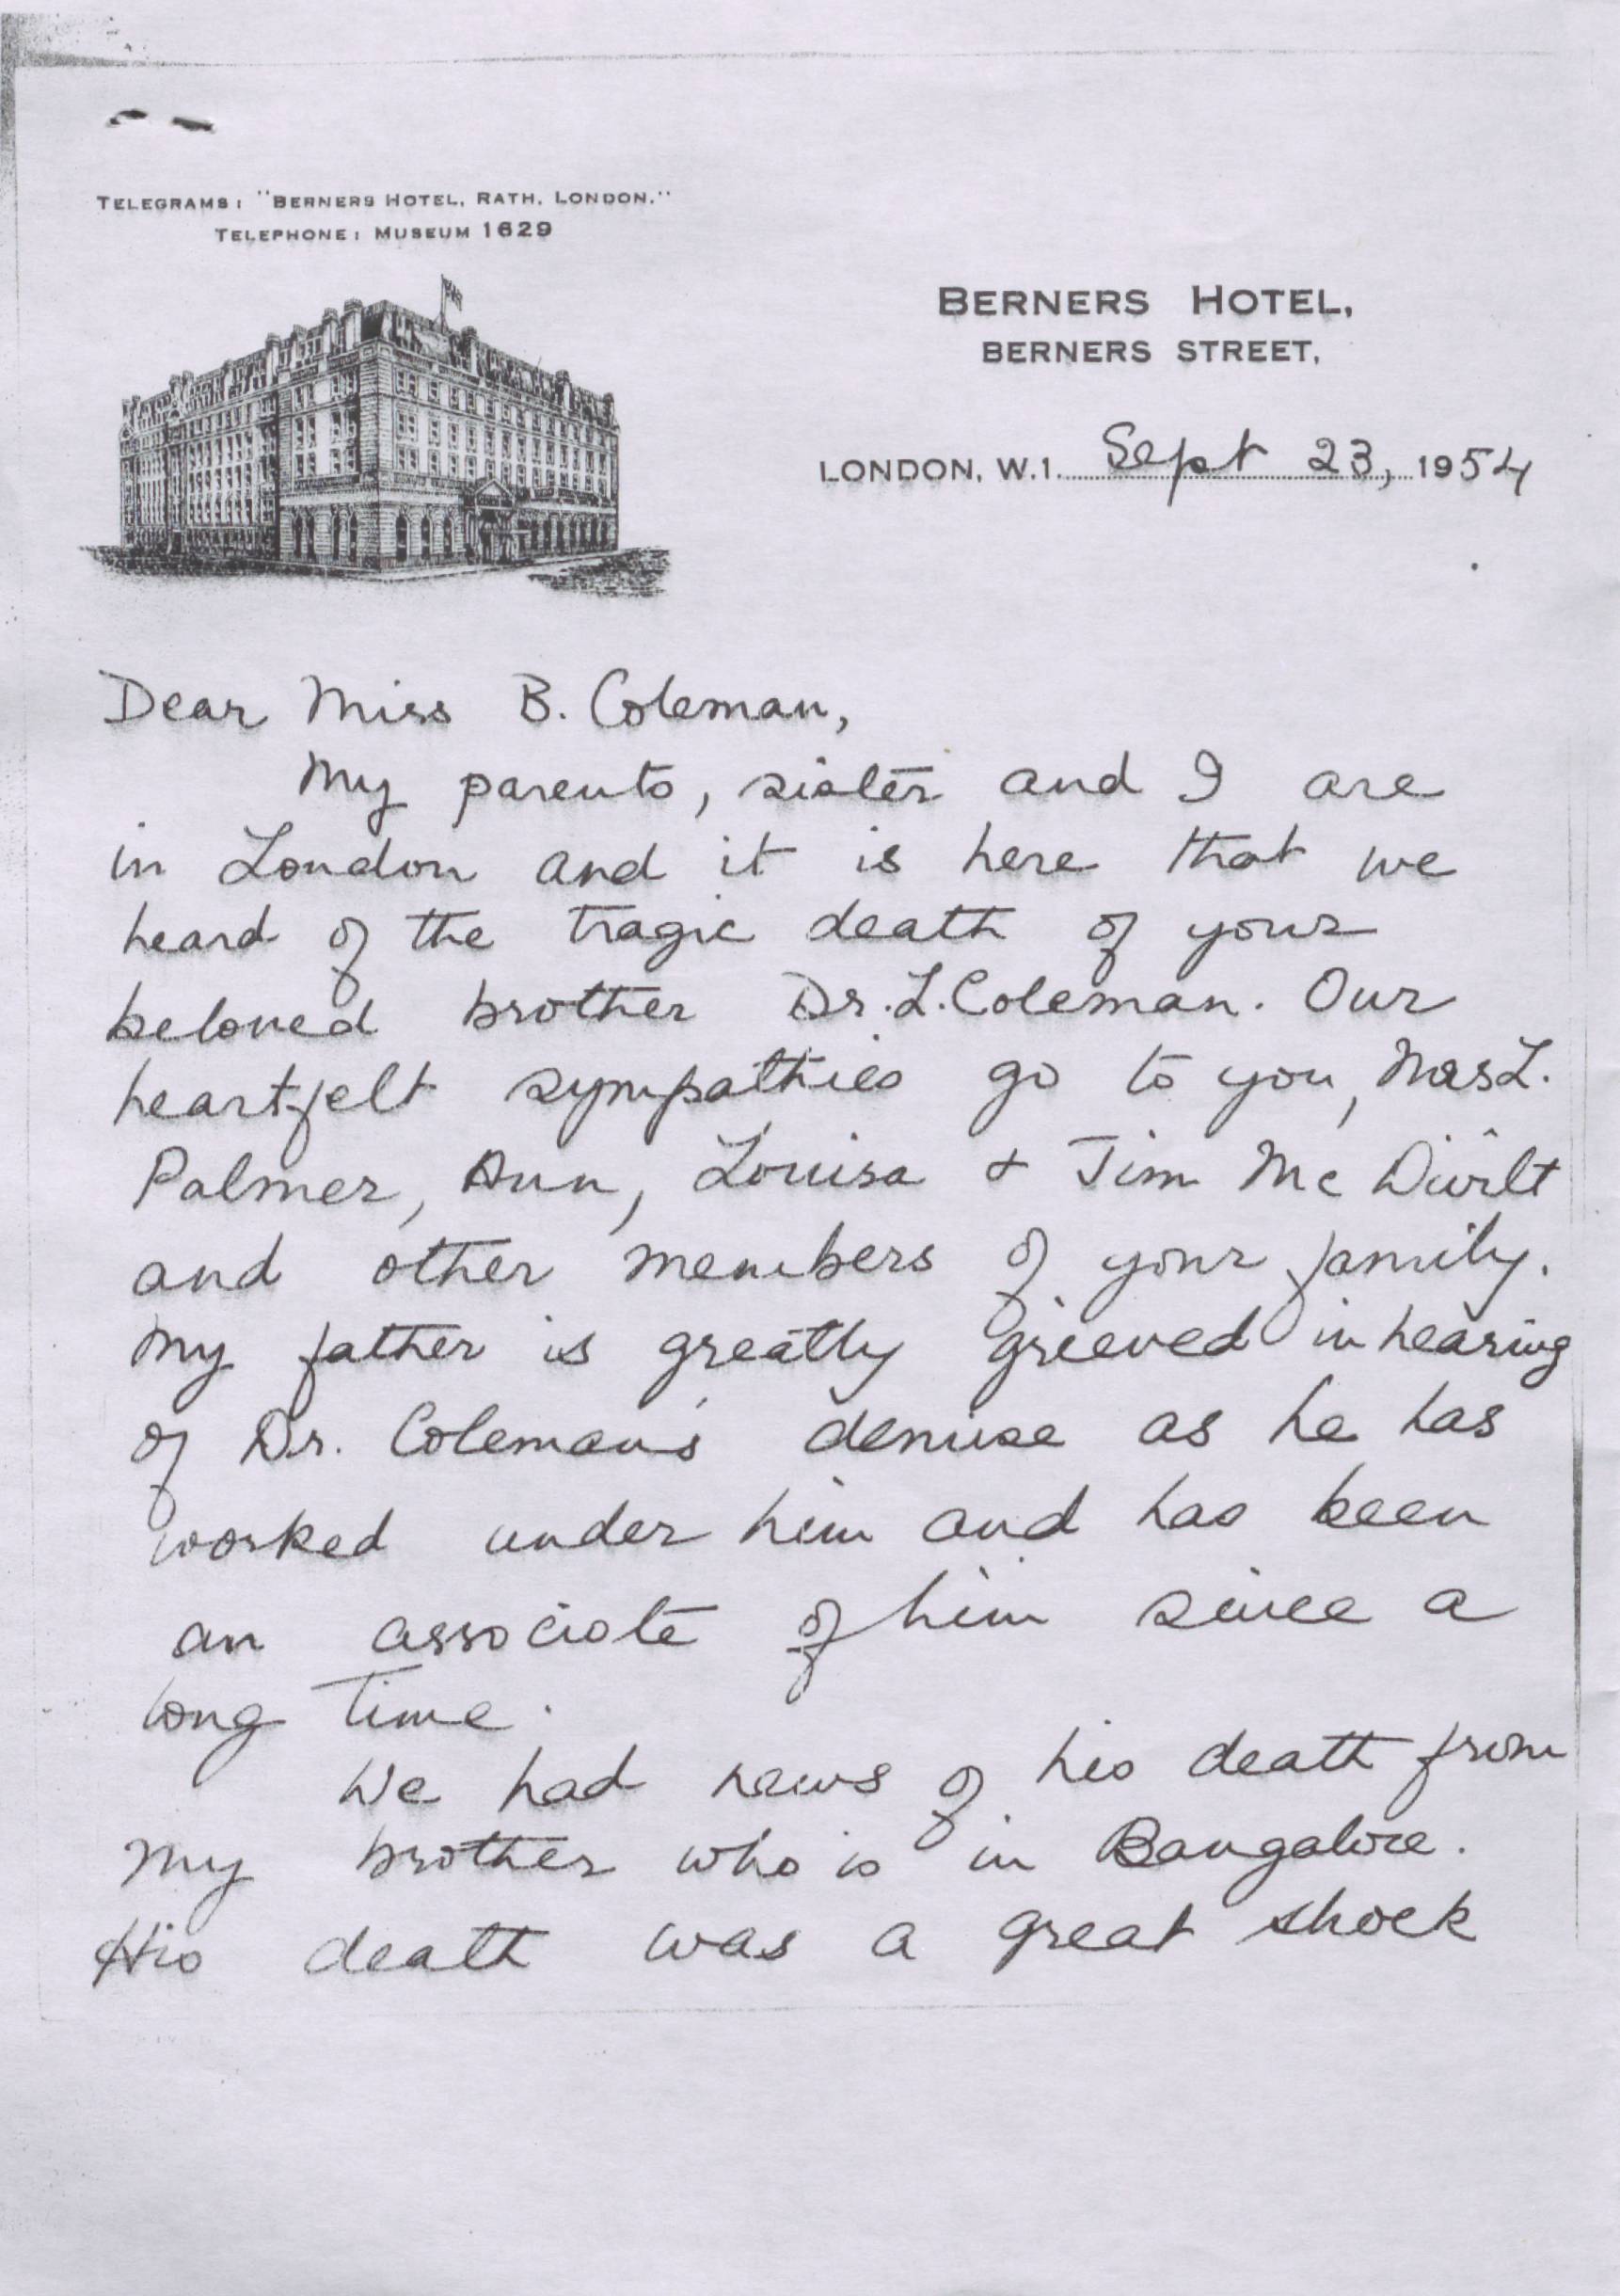 TELEGRAMS: "BERNERS HOTEL, RATH, LONDON."
TELEPHONE: MUSEUM 1629
BERNERS HOTEL,
BERNERS STREET,
LONDON, W.1. Sept 23, 1954
Dear Miss B. Coleman,
My parents, sister and I are
in London and it is here that we
heard of the tragic death of your
beloved brother Dr. L. Coleman. Our
heartfelt sympathies go to you, Mrs L.
Palmer, Ann, Louisa & Jim Mc
and other members of your family.
My father is greatly grieved in hearing
of Dr. Coleman's demise as he has
worked under him and has been
an associate of him since a
long time.
We had news of his death from
my brother who is in Bangalore.
His death was a great shock